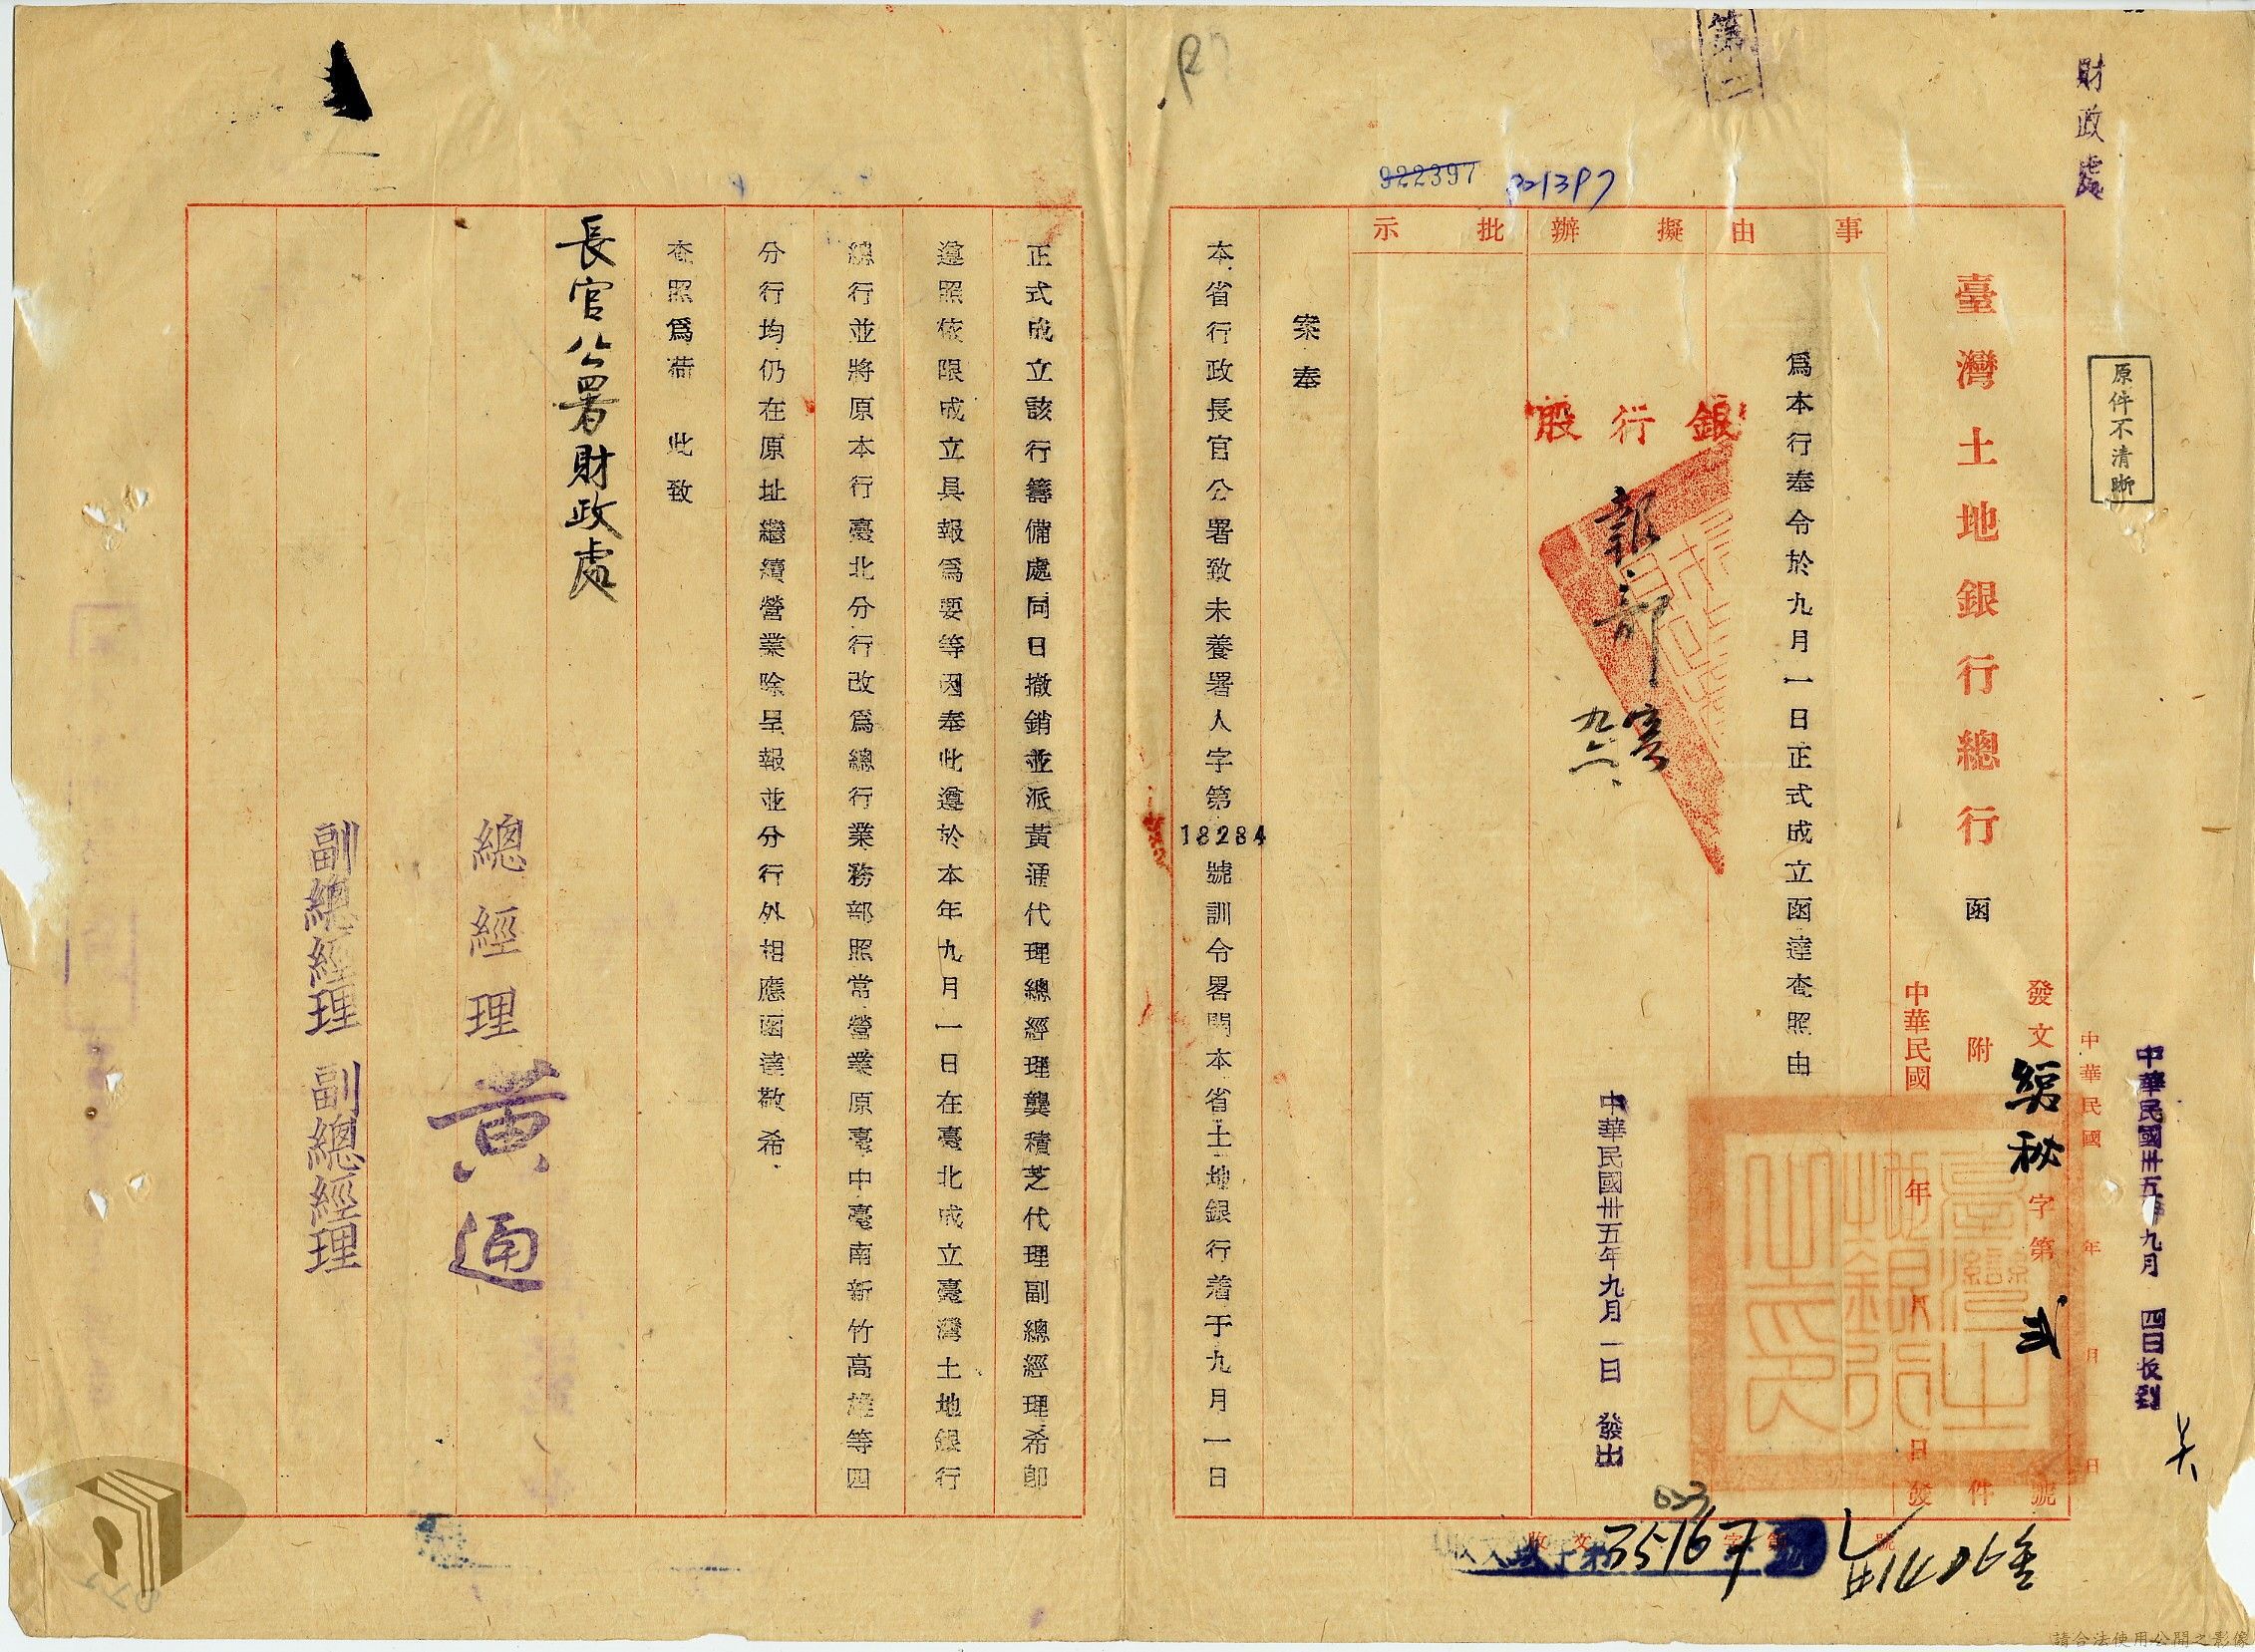 財政處
原件不清晰
中華民國卅五年九月四日收到
中華民國 年 月 日
第二
922397
221397
臺灣土地銀行總行 函
發文 總秘 字第 弍 號
附 件
中華民國 年 月 日發
臺灣土地銀行之印
事由
擬辦
批示
為本行奉令於九月一日正式成立函達查照由
銀行股
報部
九六
中華民國卅五年九月一日 發出
案奉
本省行政長官公署致未養署人字第18284號訓令畧開本省土地銀行着于九月一日
正式成立該行籌備處同日撤銷並派黃通代理總經理龔積芝代理副總經理希即
遵照依限成立具報為要等因奉此遵於本年九月一日在臺北成立臺灣土地銀行
總行並將原本行臺北分行改為總行業務部照常營業原臺中臺南新竹高雄等四
分行均仍在原址繼續營業除呈報並分行外相應函達敬希
查照為荷 此致
長官公署財政處
總經理 黃通
副總經理 副總經理
收文 字第 號
35167
請合法使用公開之影像